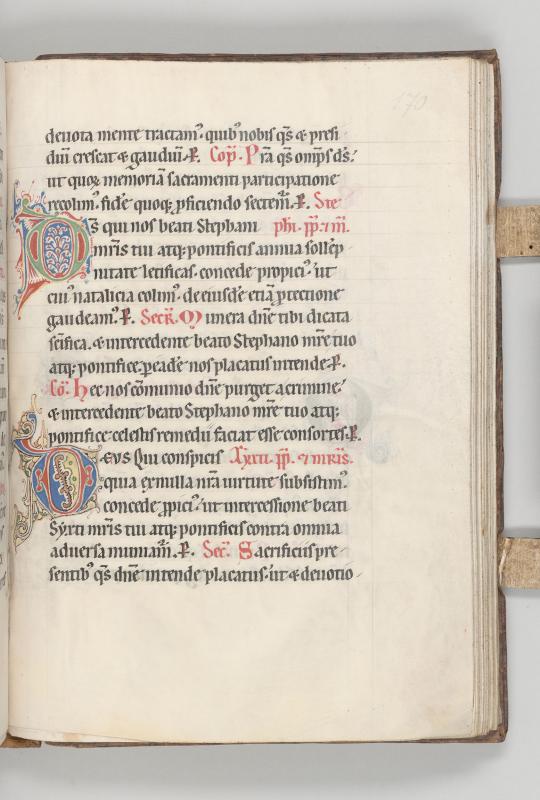 170
deuota mente tractam᷒· quib᷒ nobis q̄s & presi
diū crescat & gaudiū. P̄. Cōp̄. Pr̄a q̄s omp̄s d̄s.᷄
ut quoꝝ memoriā sacramenti participatione
recolim᷒· fide quoq; ꝓficiendo sectem̄. P̄. Ste
D̄s qui nos beati Stephani phi. p̄p̄. & m̄r.
mr̄is tui atq; pontificis annua sollēp
nitate letificas· concede propici᷒ ut
cui᷒ natalicia colim᷒· de eiusdē etiā ꝓtectione
gaudeam᷒. P̄. Secr̄. Munera dn̄e tibi dicata
sc̄ifica· & intercedente beato Stephano mr̄e tuo
atq; pontifice· ꝑ eadē nos placatus intende. P̄.
Cō. Hec nos cōmunio dn̄e purget a crimine᷄
& intercedente beato Stephano mr̄e tuo atq;
pontifice· celestis remedii faciat esse consortes. P̄.
DEVS Qui conspicis Xyxti. p̄p̄. & mr̄is.
quia ex nulla nr̄a uirtute subsistim᷒
concede ꝓpici᷒· ut intercessione beati
Syxti mr̄is tui atq; pontificis contra omnia
aduersa muniam̄. P̄. Sec̄. Sacrificiis pre
sentib᷒ q̄s dn̄e intende placatus· ut & deuotio